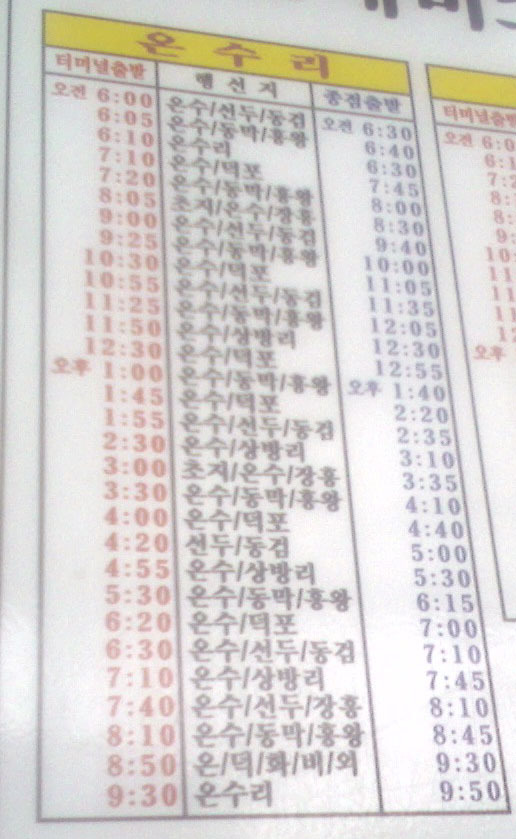 온수리
터미널출발 행선지 종점출발
오전 6:00 온수/선두/동검 오전 6:30
6:05 온수/동막/흥왕 6:40
6:10 온수리 6:30
7:10 온수/덕포 7:45
7:20 온수/동막/흥왕 8:00
8:05 초지/온수/장흥 8:30
9:00 온수/선두/동검 9:40
9:25 온수/동막/흥왕 10:00
10:30 온수/덕포 11:05
10:55 온수/선두/동검 11:35
11:25 온수/동막/흥왕 12:05
11:50 온수/상방리 12:30
12:30 온수/덕포 12:55
오후 1:00 온수/동막/흥왕 오후 1:40
1:45 온수/덕포 2:20
1:55 온수/선두/동검 2:35
2:30 온수/상방리 3:10
3:00 초지/온수/장흥 3:35
3:30 온수/동막/흥왕 4:10
4:00 온수/덕포 4:40
4:20 선두/동검 5:00
4:55 온수/상방리 5:30
5:30 온수/동막/흥왕 6:15
6:20 온수/덕포 7:00
6:30 온수/선두/동검 7:10
7:10 온수/상방리 7:45
7:40 온수/선두/장흥 8:10
8:10 온수/동막/흥왕 8:45
8:50 온/덕/화/비/외 9:30
9:30 온수리 9:50
터미널출발
오전
오후